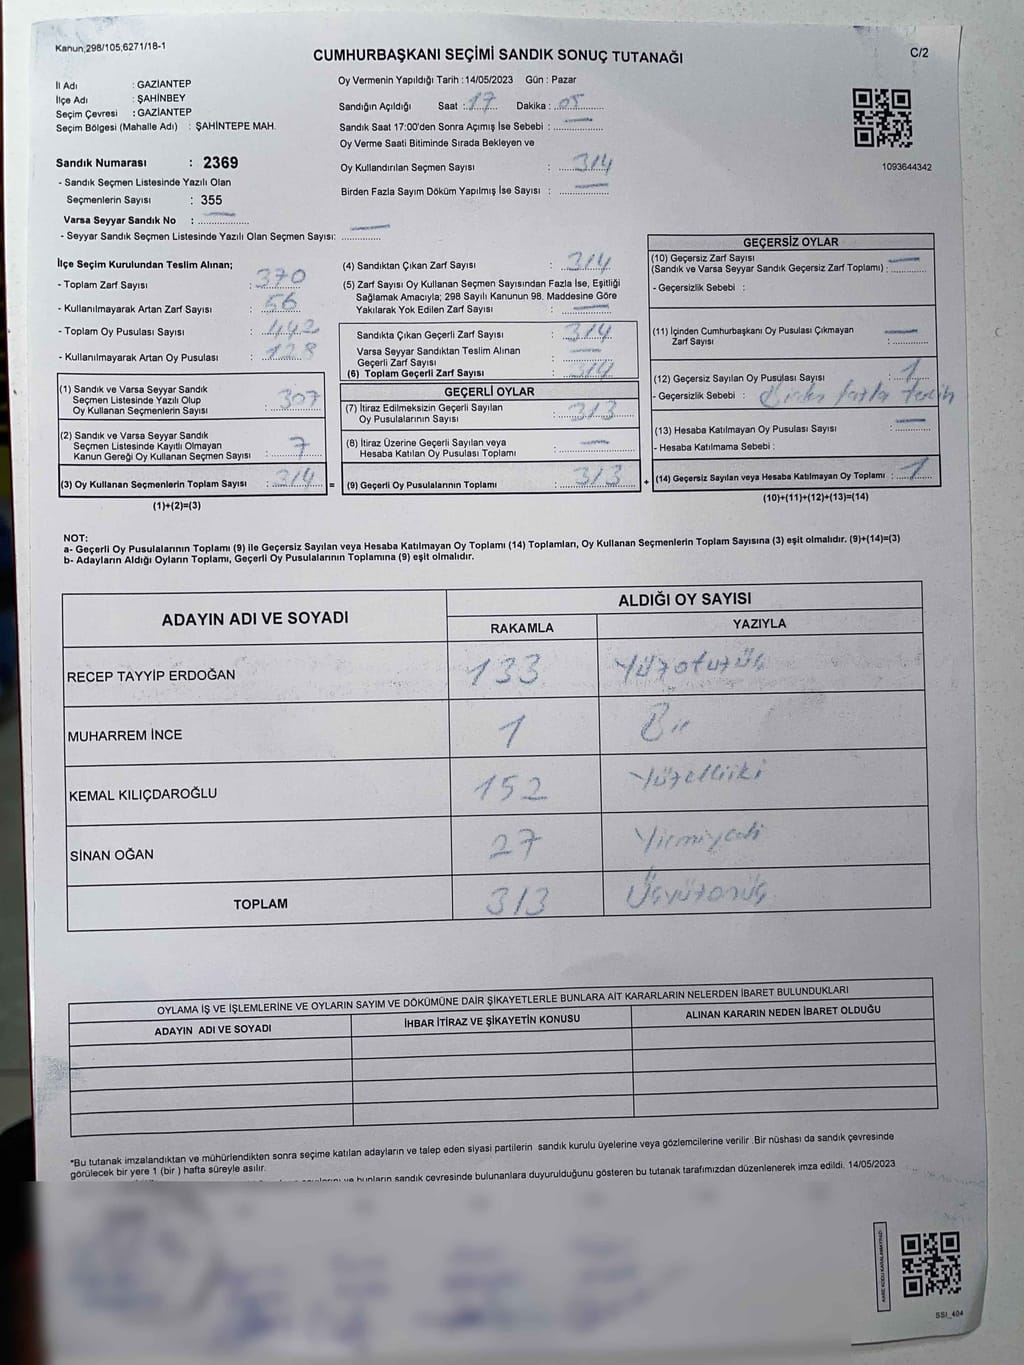 Kanun,298/105,6271/18-1
CUMHURBAŞKANI SEÇİMİ SANDIK SONUÇ TUTANAĞI
C/2
İl Adı : GAZİANTEP
İlçe Adı : ŞAHİNBEY
Seçim Çevresi : GAZİANTEP
Seçim Bölgesi (Mahalle Adı) : ŞAHİNTEPE MAH.
Oy Vermenin Yapıldığı Tarih :14/05/2023 Gün : Pazar
Sandığın Açıldığı Saat : 17 Dakika : 05
Sandık Saat 17:00'den Sonra Açımış İse Sebebi :
Oy Verme Saati Bitiminde Sırada Bekleyen ve
Oy Kullandırılan Seçmen Sayısı : 314
Birden Fazla Sayım Döküm Yapılmış İse Sayısı :
1093644342
Sandık Numarası : 2369
- Sandık Seçmen Listesinde Yazılı Olan
Seçmenlerin Sayısı : 355
Varsa Seyyar Sandık No :
- Seyyar Sandık Seçmen Listesinde Yazılı Olan Seçmen Sayısı:
İlçe Seçim Kurulundan Teslim Alınan;
- Toplam Zarf Sayısı : 370
- Kullanılmayarak Artan Zarf Sayısı : 56
- Toplam Oy Pusulası Sayısı : 442
- Kullanılmayarak Artan Oy Pusulası : 128
(1) Sandık ve Varsa Seyyar Sandık
Seçmen Listesinde Yazılı Olup
Oy Kullanan Seçmenlerin Sayısı : 307
(2) Sandık ve Varsa Seyyar Sandık
Seçmen Listesinde Kayıtlı Olmayan
Kanun Gereği Oy Kullanan Seçmen Sayısı : 7
(3) Oy Kullanan Seçmenlerin Toplam Sayısı : 314 =
(1)+(2)=(3)
(4) Sandıktan Çıkan Zarf Sayısı : 314
(5) Zarf Sayısı Oy Kullanan Seçmen Sayısından Fazla İse, Eşitliği
Sağlamak Amacıyla; 298 Sayılı Kanunun 98. Maddesine Göre
Yakılarak Yok Edilen Zarf Sayısı :
Sandıkta Çıkan Geçerli Zarf Sayısı : 314
Varsa Seyyar Sandıktan Teslim Alınan
Geçerli Zarf Sayısı :
(6) Toplam Geçerli Zarf Sayısı : 314
GEÇERLİ OYLAR
(7) İtiraz Edilmeksizin Geçerli Sayılan
Oy Pusulalarının Sayısı : 313
(8) İtiraz Üzerine Geçerli Sayılan veya
Hesaba Katılan Oy Pusulası Toplamı :
(9) Geçerli Oy Pusulalarının Toplamı : 313 +
GEÇERSİZ OYLAR
(10) Geçersiz Zarf Sayısı
(Sandık ve Varsa Seyyar Sandık Geçersiz Zarf Toplamı) :
- Geçersizlik Sebebi :
(11) İçinden Cumhurbaşkanı Oy Pusulası Çıkmayan
Zarf Sayısı :
(12) Geçersiz Sayılan Oy Pusulası Sayısı : 1
- Geçersizlik Sebebi : Birden fazla tercih
(13) Hesaba Katılmayan Oy Pusulası Sayısı :
- Hesaba Katılmama Sebebi :
(14) Geçersiz Sayılan veya Hesaba Katılmayan Oy Toplamı : 1
(10)+(11)+(12)+(13)=(14)
NOT:
a- Geçerli Oy Pusulalarının Toplamı (9) ile Geçersiz Sayılan veya Hesaba Katılmayan Oy Toplamı (14) Toplamları, Oy Kullanan Seçmenlerin Toplam Sayısına (3) eşit olmalıdır. (9)+(14)=(3)
b- Adayların Aldığı Oyların Toplamı, Geçerli Oy Pusulalarının Toplamına (9) eşit olmalıdır.
ADAYIN ADI VE SOYADI ALDIĞI OY SAYISI
RAKAMLA YAZIYLA
RECEP TAYYİP ERDOĞAN 133 Yüzotuzüç
MUHARREM İNCE 1 Bir
KEMAL KILIÇDAROĞLU 152 Yüzelliiki
SİNAN OĞAN 27 Yirmiyedi
TOPLAM 313 Üçyüzonüç
OYLAMA İŞ VE İŞLEMLERİNE VE OYLARIN SAYIM VE DÖKÜMÜNE DAİR ŞİKAYETLERLE BUNLARA AİT KARARLARIN NELERDEN İBARET BULUNDUKLARI
ADAYIN ADI VE SOYADI İHBAR İTİRAZ VE ŞİKAYETİN KONUSU ALINAN KARARIN NEDEN İBARET OLDUĞU
*Bu tutanak imzalandıktan ve mühürlendikten sonra seçime katılan adayların ve talep eden siyasi partilerin sandık kurulu üyelerine veya gözlemcilerine verilir .Bir nüshası da sandık çevresinde
görülecek bir yere 1 (bir ) hafta süreyle asılır.
bunların sandık çevresinde bulunanlara duyurulduğunu gösteren bu tutanak tarafımızdan düzenlenerek imza edildi. 14/05/2023
SSI_404